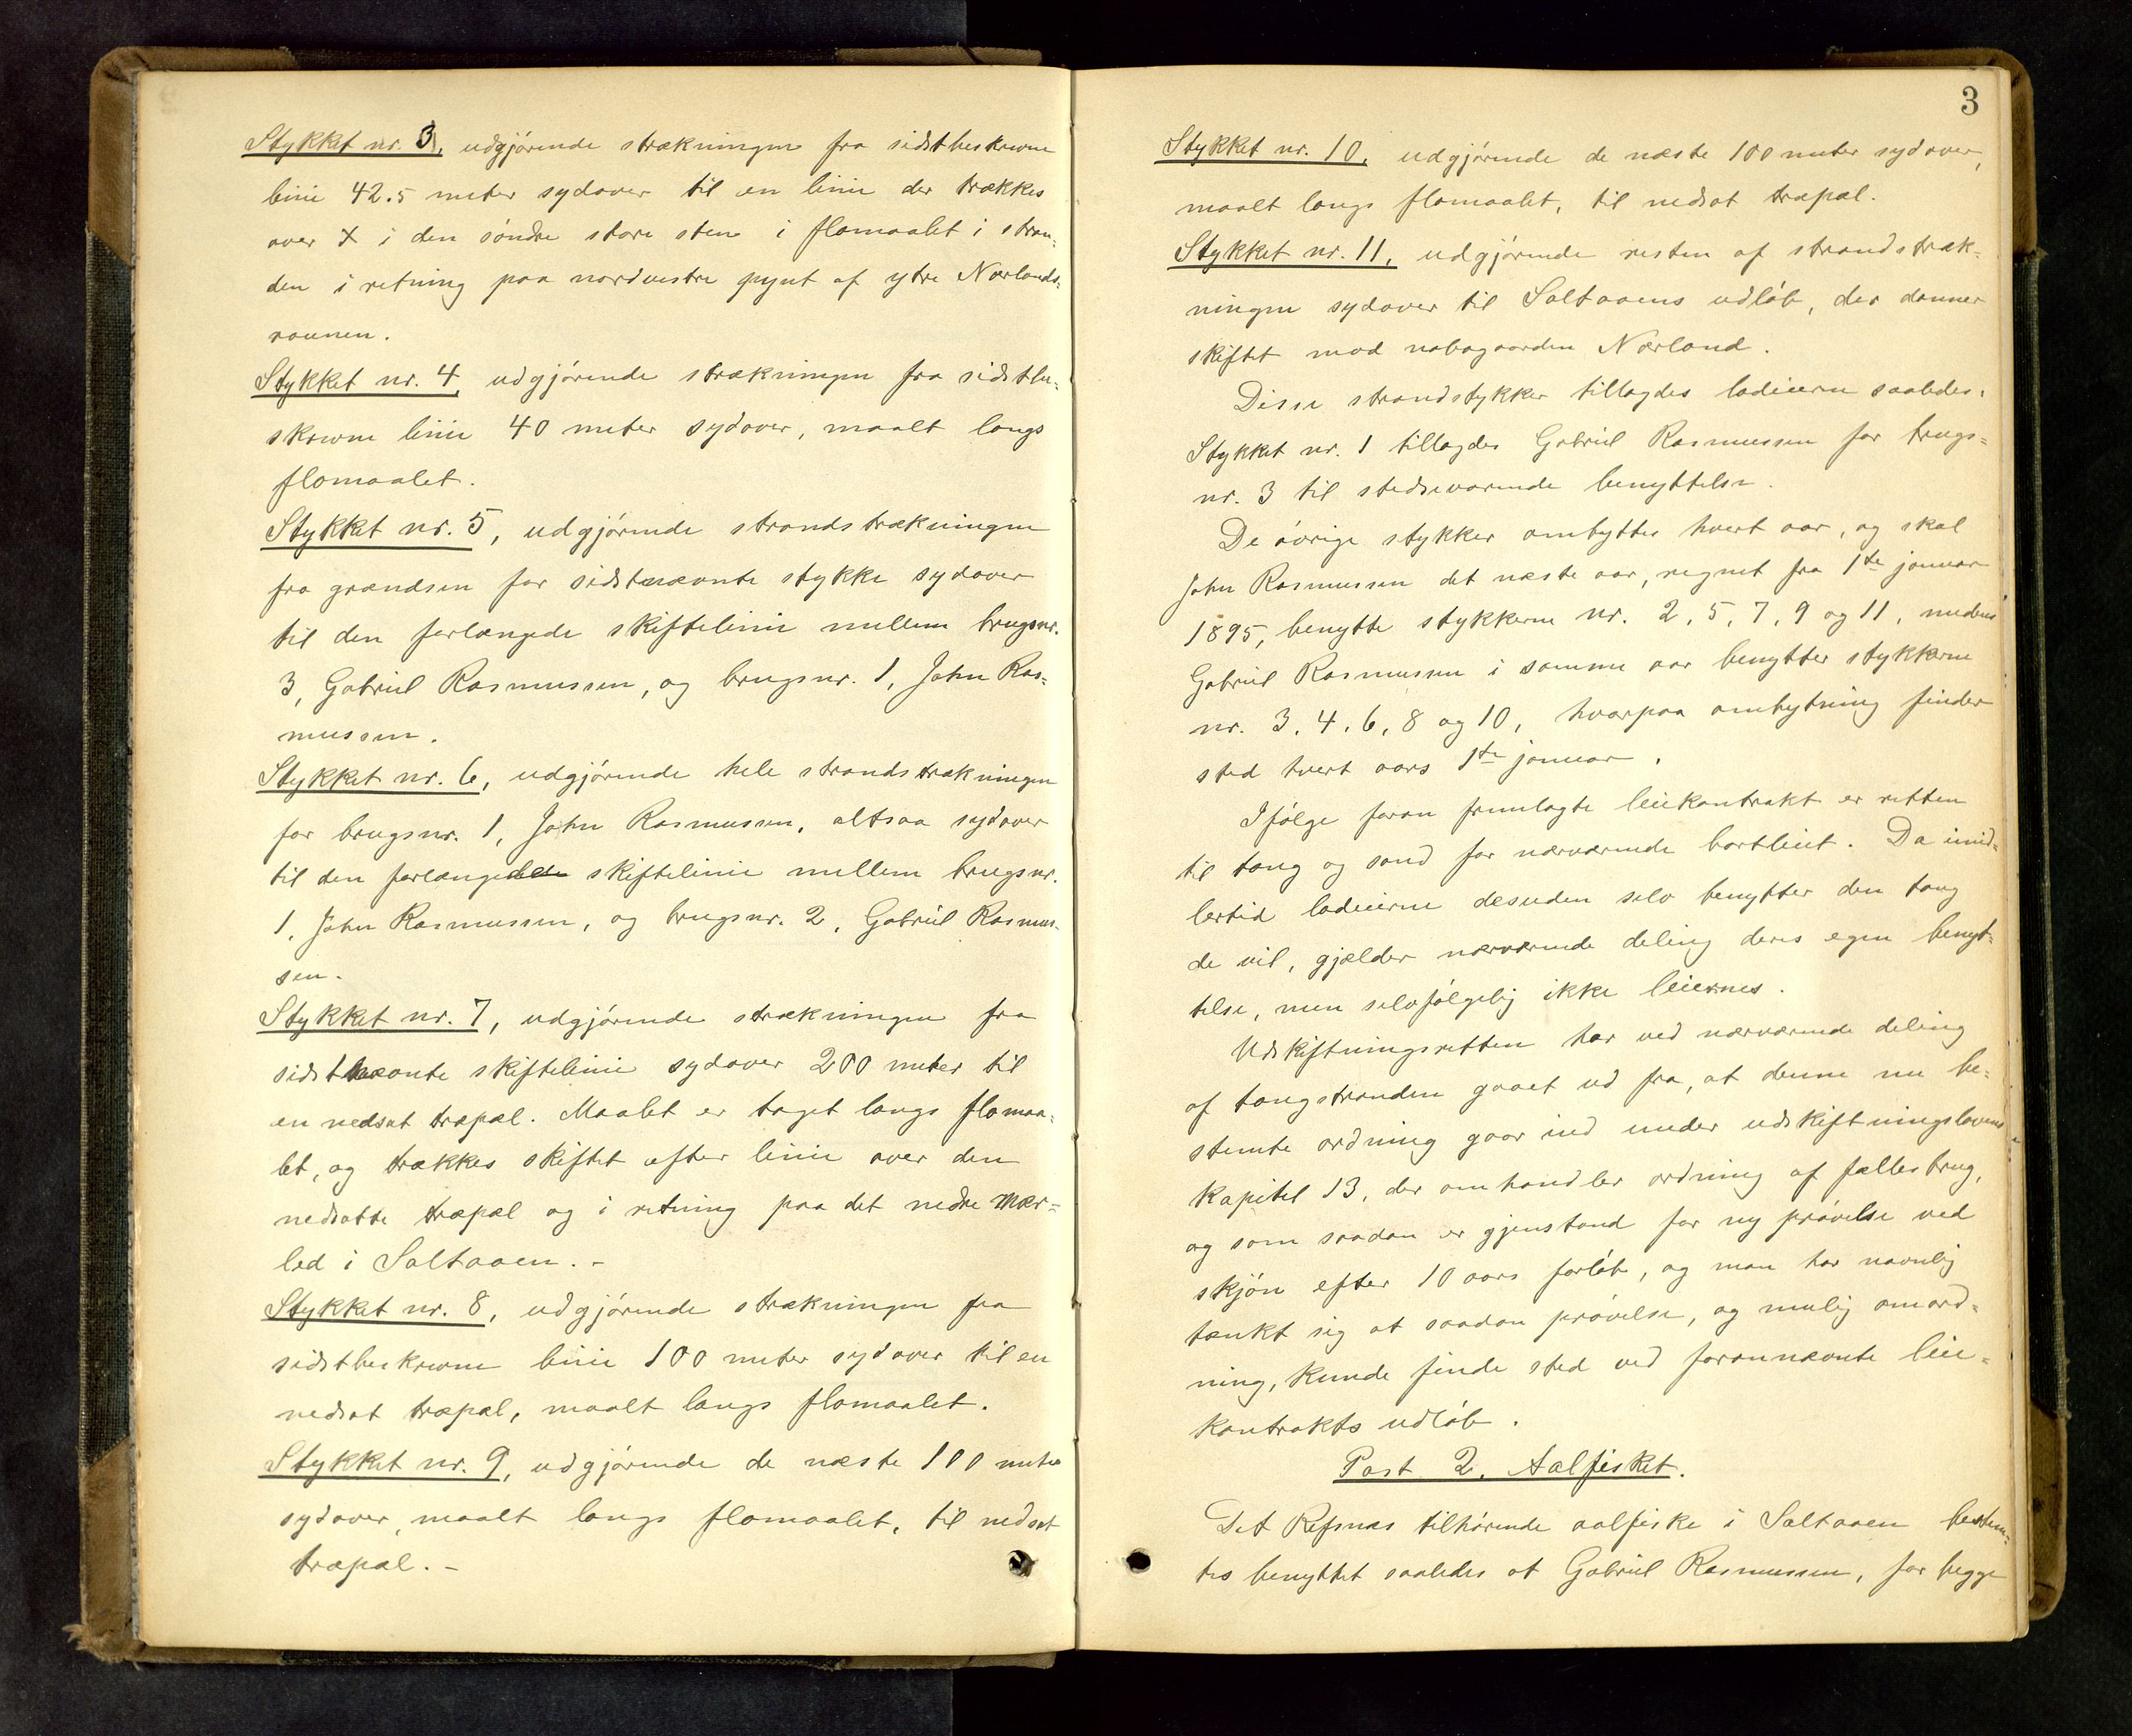 Stykket nr. 3, udgjørende strækningen fra sidstbeskrevne
linie 42.5 meter sydover til en linie der trækkes
over X i den søndre store sten i flomaalet i stran-
den i retning paa nordvestre pynt af ytre Nærlands-
raunen.
Stykket nr. 4, udgjørende strækningen fra sidstbe-
skrevne linie 40 meter sydover, maalt langs
flomaalet.
Stykket nr. 5, udgjørende strandstrækningen
fra grændsen for sidstnævnte stykke sydover
til den forlængede skiftelinie mellem brugsnr.
3, Gabriel Rasmussen, og brugsnr. 1, John Ras-
mussen.
Stykket nr. 6, udgjørende hele strandstrækningen
for brugsnr. 1, John Rasmussen, altsaa sydover
til den forlængede skiftelinie mellem brugsnr.
1, John Rasmussen, og brugsnr. 2, Gabriel Rasmus-
sen.
Stykket nr. 7, udgjørende strækningen fra
sidstnævnte skiftelinie sydover 200 meter til
en nedsat træpæl. Maalet er taget langs flomaa-
let, og trækkes skiftet efter linie over den
nedsatte træpæl og i retning paa det nedre mær-
led i Saltaaen. -
Stykket nr. 8, udgjørende strækningen fra
sidstbeskrevne linie 100 meter sydover til en
nedsat træpæl, maalt langs flomaalet.
Stykket nr. 9, udgjørende de næste 100 meter
sydover, maalt langs flomaalet, til nedsat
træpæl. -
3
Stykket nr. 10, udgjørende de næste 100 meter sydover,
maalt langs flomaalet, til nedsat træpæl.
Stykket nr. 11, udgjørende resten af strandstræk-
ningen sydover til Saltaaens udløb, der danner
skiftet mod nabogaarden Nærland.
Disse strandstykker tillagdes lodeierne saaledes:
Stykket nr. 1 tillagdes Gabriel Rasmussen for brugs-
nr. 3 til stedsevarende benyttelse.
De øvrige stykker ombyttes hvert aar, og skal
John Rasmussen det næste aar, regnet fra 1ste januar
1895, benytte stykkerne nr. 2, 5, 7, 9 og 11, medens
Gabriel Rasmussen i samme aar benytter stykkerne
nr. 3, 4, 6, 8 og 10, hvorpaa ombytning finder
sted hvert aars 1ste januar.
Ifølge foran fremlagte leiekontrakt er retten
til tang og sand for nærværende bortleiet. Da imid-
lertid lodeierne desuden selv benytter den tang
de vil, gjælder nærværende deling deres egen benyt-
telse, men selvfølgelig ikke leiernes.
Udskiftningsretten har ved nærværende deling
af tangstranden gaaet ud fra, at denne nu be-
stemte ordning gaar ind under udskiftningslovens
kapitel 13, der omhandler ordning af fællesbrug,
og som saadan er gjenstand for ny prøvelse ved
skjøn efter 10 aars forløb, og man har navnlig
tænkt sig at saadan prøvelse, og mulig omord-
ning, kunde finde sted ved forannævnte leie-
kontrakts udløb.
Post 2. Aalfisket.
Det Refsnæs tilhørende aalfiske i Saltaaen bestem-
tes benyttet saaledes at Gabriel Rasmussen, for begge